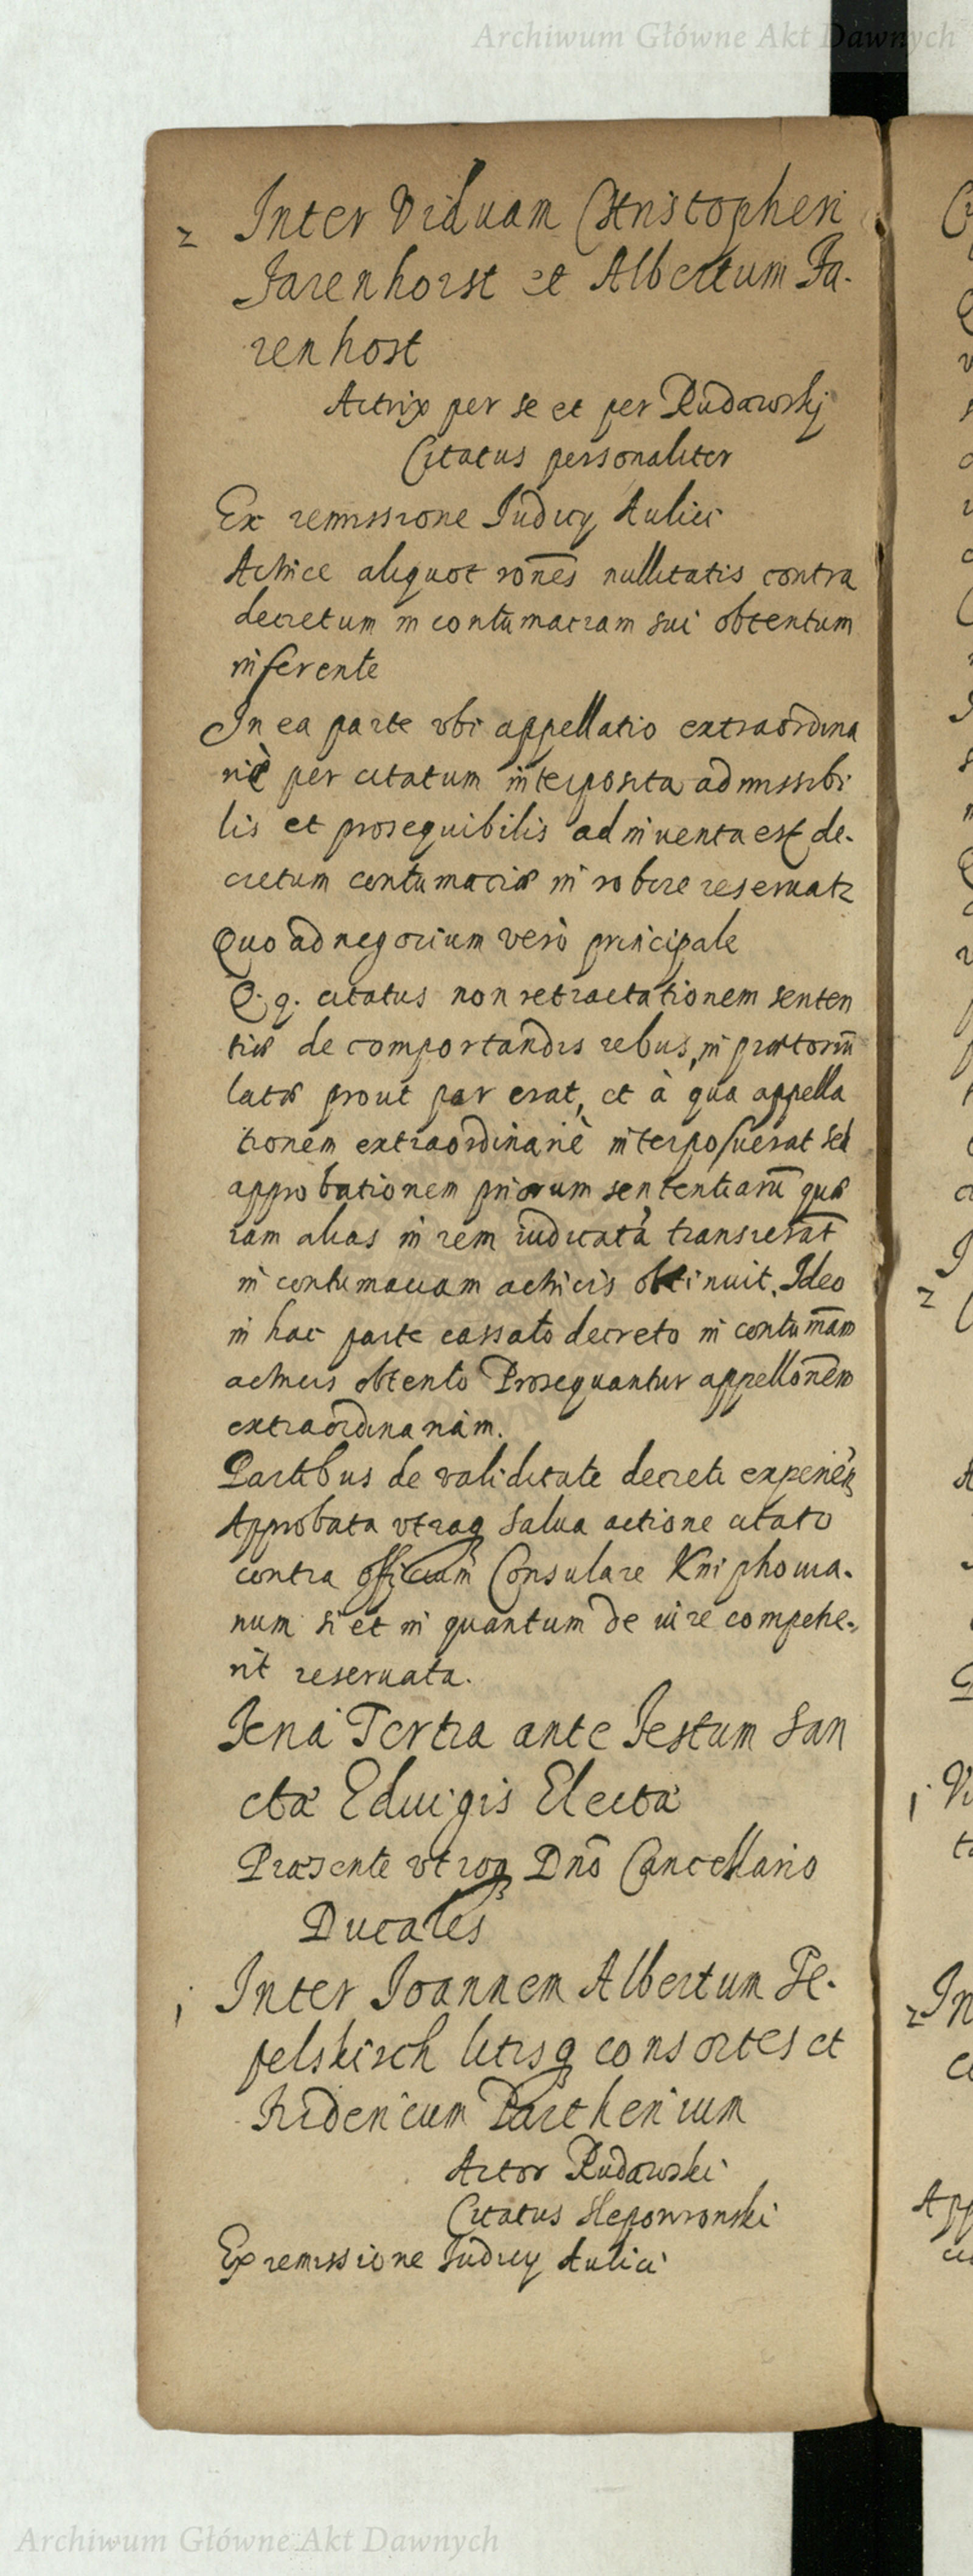 Archiwum Główne Akt Dawnych
2 Inter Viduam Christopheri
Farenhorst et Albertum Fa-
renhost
Actrix per se et per Rudawskj
Citatus personaliter
Ex remissione Iudicy Aulici
Actrice aliquot rones nullitatis contra
decretum in contumaciam sui obtentum
inferente
In ea parte vbi appellatio extraordina
riè per citatum interposita admissibi
lis et prosequibilis adinuenta est de-
cretum contumaciæ in robore reseruatr
Quo ad negocium verò principale
Q. q. citatus non retractationem senten
tiæ de comportandis rebus in prætoriu
latæ prout par erat, et à qua appella
tionem extraordinariè interposuerat sed
approbationem priorum sententiaru quæ
iam alias in rem iudicata transierat
in contumaciam actricis obtinuit. Ideo
in hac parte cassato decreto in contumam
actricis obtento Prosequantur appellonem
extraordinariam.
Partibus de validitate decreti
Approbata vtraq salua actione citato
contra officium Consulare Kniphouia-
num si et in quantum de iure compete-
rit reseruata.
Feria Tertia ante Festum San
ctæ Eduigis Electæ
Præsente vtroq Dno Cancellario
Ducales
1 Inter Ioannem Albertum Pe-
pelskirch litisq consortes et
Fridericum Parthenium
Actor Rudawski
Citatus Slepowronski
Ex remissione Iudicy Aulici
Archiwum Główne Akt Dawnych